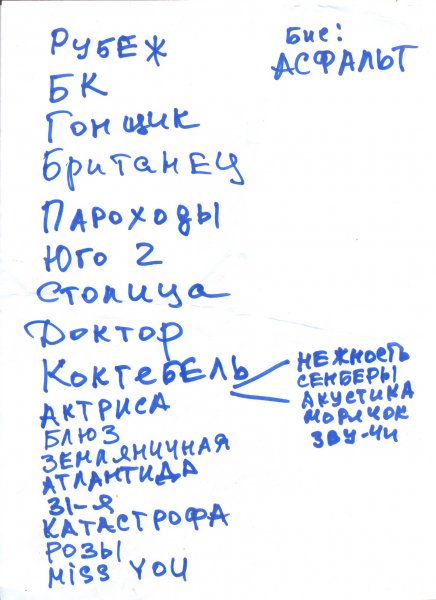 Рубеж
БК
Гонщик
Британец
Пароходы
Юго 2
Столица
Доктор
Коктебель
Актриса
Блюз
Земляничная
Атлантида
31-я
Катастрофа
Розы
Miss You
Бис:
Асфальт
Нежность
Сенберы
Акустика
Морячок
Зву-чи